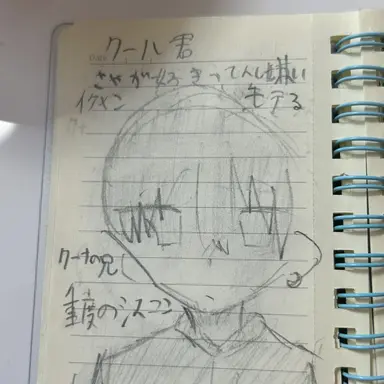 クール君
さやが好きって人は嫌い
イケメン
モテる
クーナの兄
重度のシスコン